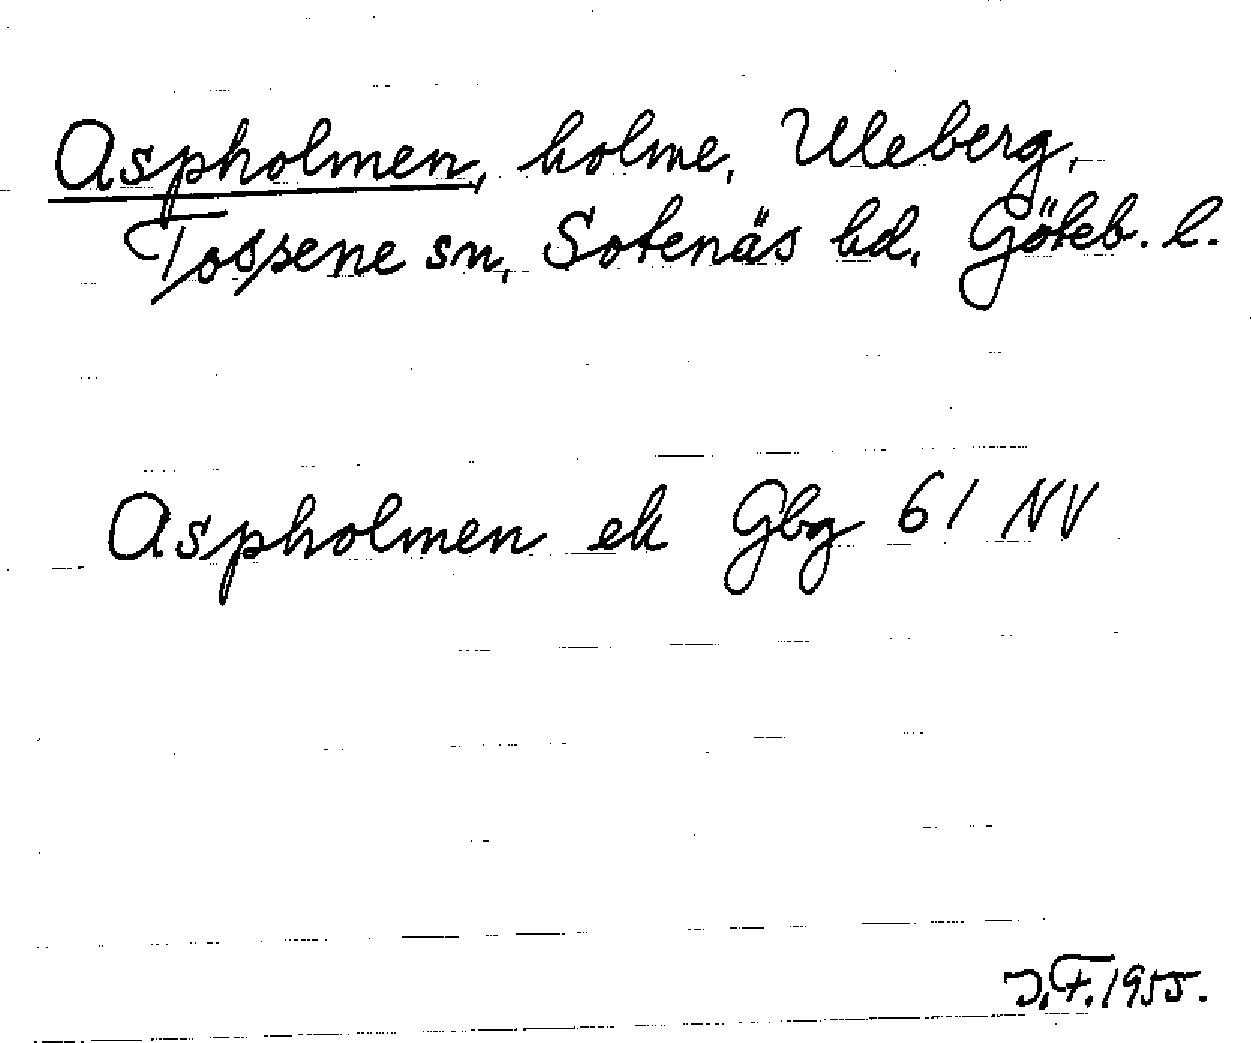 Aspholmen, holme, Uleberg,
Tossene sn, Sotenäs hd, Göteb. l.
Aspholmen ek Gbg 61 NV
J.F. 1955.